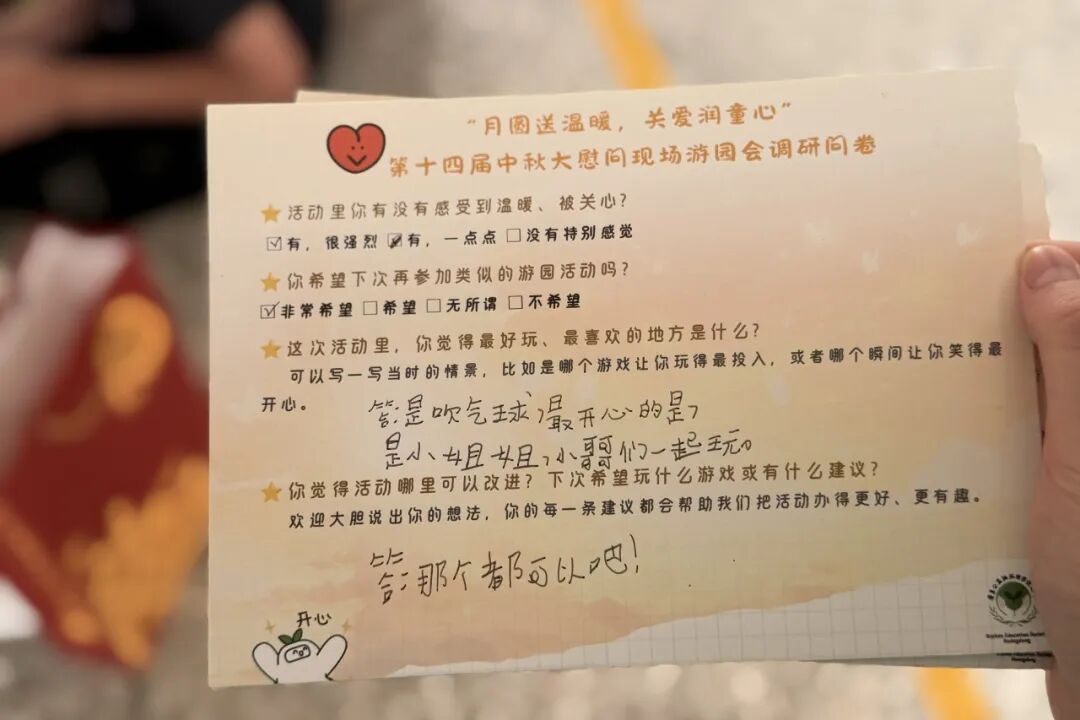 “月圆送温暖，关爱润童心”
第十四届中秋大慰问现场游园会调研问卷
活动里你有没有感受到温暖、被关心？
☑有，很强烈 ☑有，一点点 □没有特别感觉
你希望下次再参加类似的游园活动吗？
☑非常希望 □希望 □无所谓 □不希望
这次活动里，你觉得最好玩、最喜欢的地方是什么？
可以写一写当时的情景，比如是哪个游戏让你玩得最投入，或者哪个瞬间让你笑得最
开心。
答:是吹气球,最开心的是,
是小姐姐,小哥们一起玩。
你觉得活动哪里可以改进？下次希望玩什么游戏或有什么建议？
欢迎大胆说出你的想法，你的每一条建议都会帮助我们把活动办得更好、更有趣。
答:那个都可以吧!
开心
Orphan Education Society
Guangdong